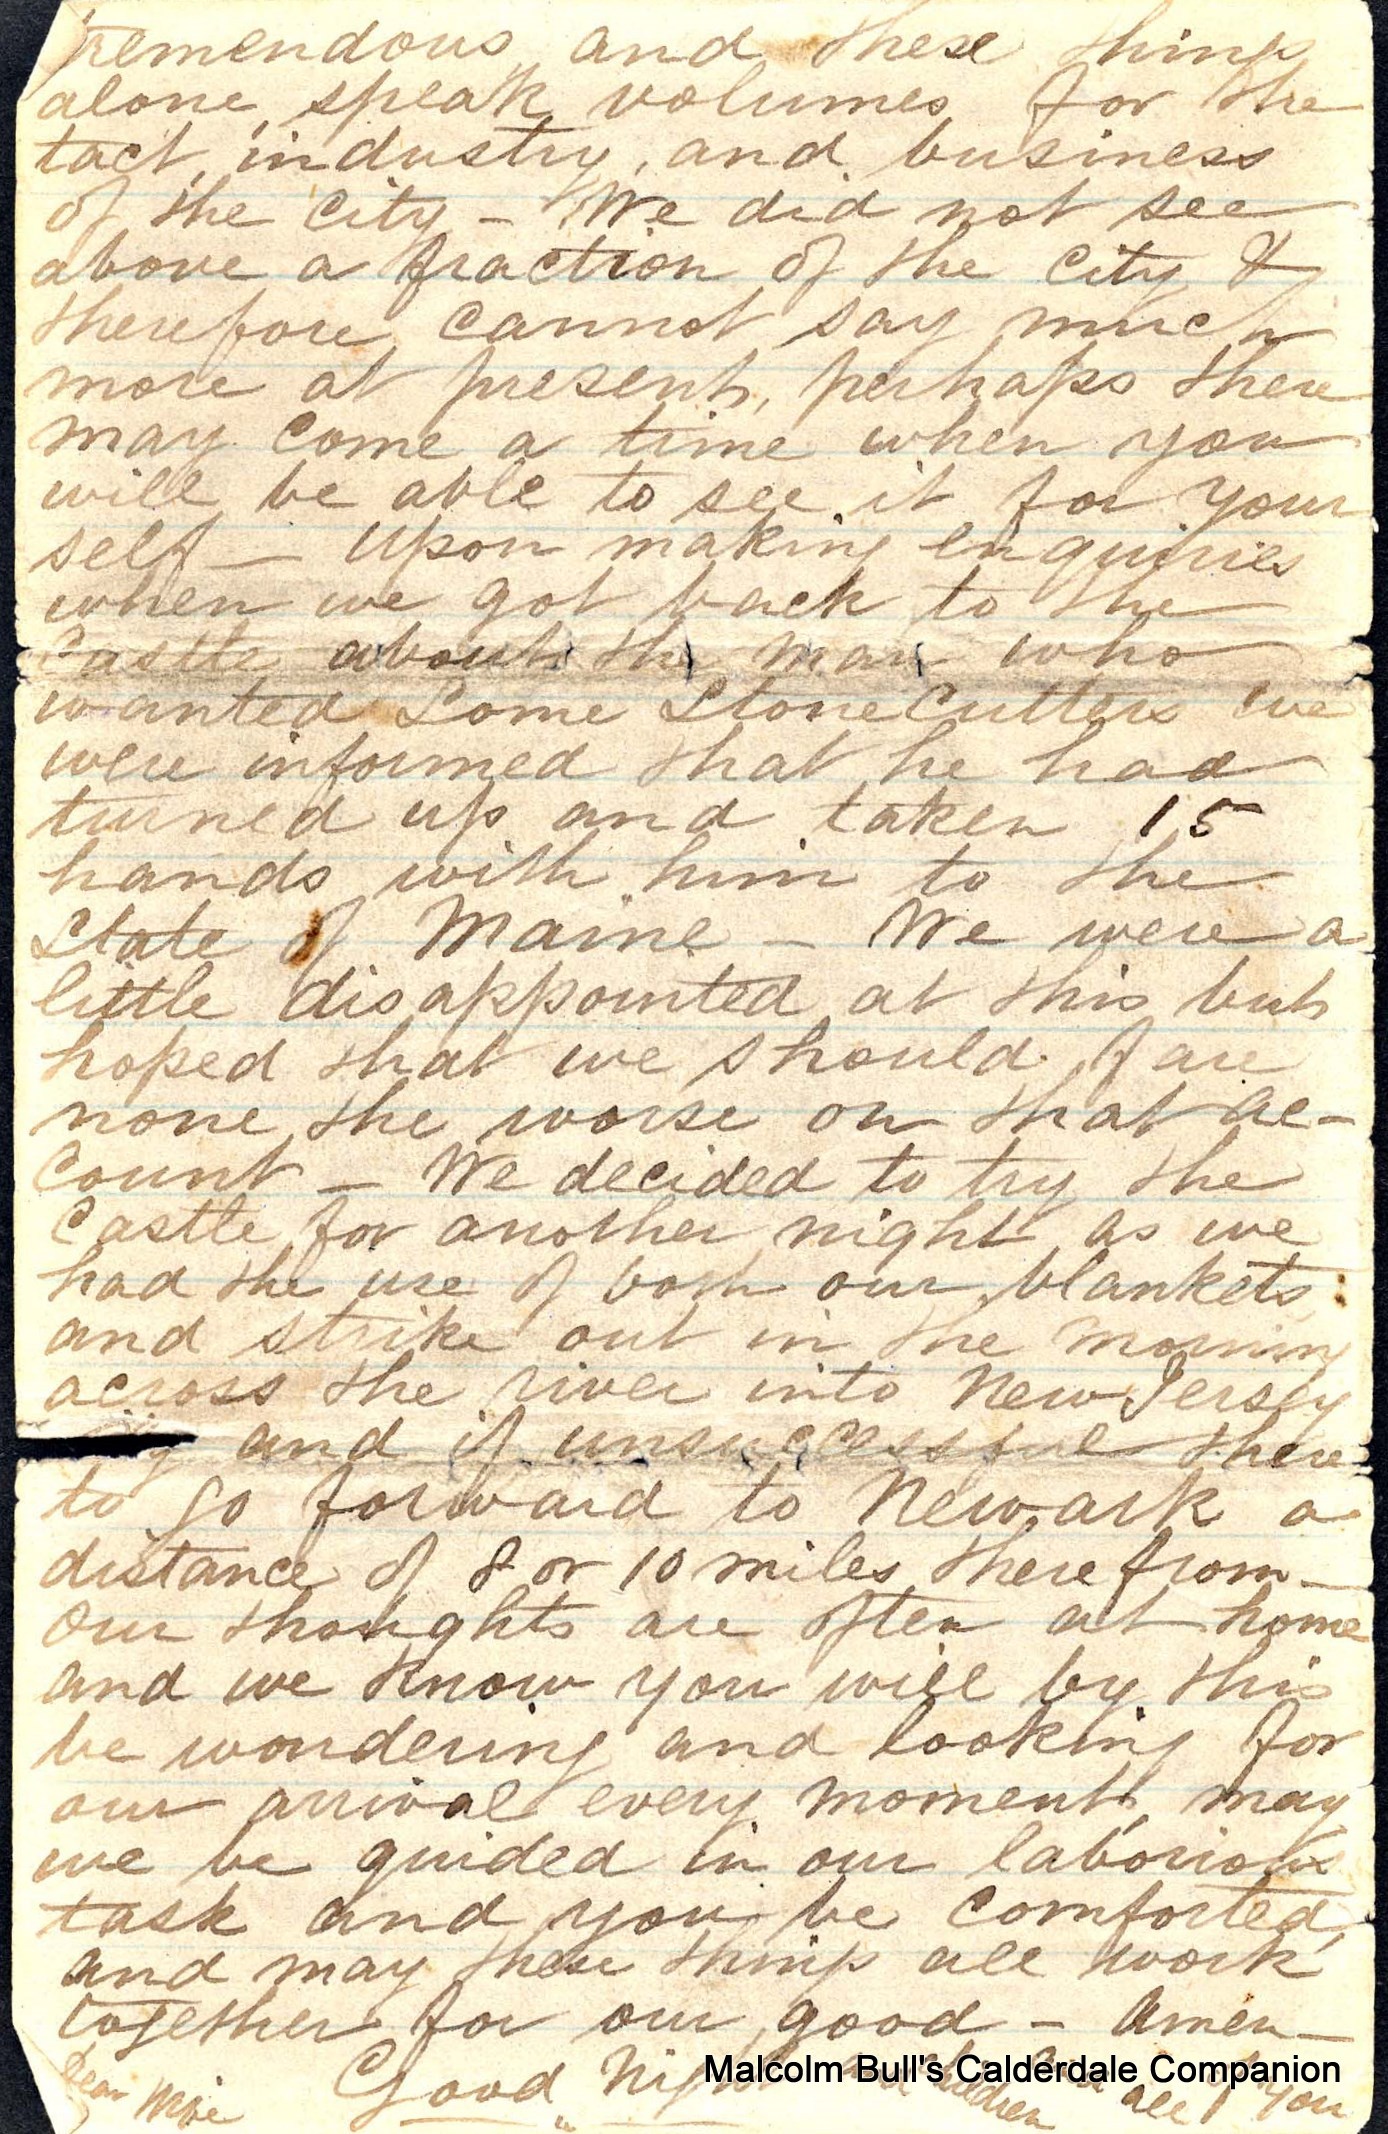 tremendous and these things
alone, speak volumes for the
tact, industry, and business
of the city - We did not see
above a fraction of the city &
therefore cannot say much
more at present, perhaps there
may come a time when you
will be able to see it for your
self - Upon making enquiries
when we got back to the
Castle about the man who
wanted some StoneCutters we
were informed that he had
turned up and taken 15
hands with him to the
State of Maine - We were a
little disappointed at this but
hoped that we should fare
none the worse on that ac-
count - We decided to try the
Castle for another night as we
had the use of both our blankets
and strike out in the morning
across the river into New Jersey
and if unsuccessful there
to go forward to Newark a
distance of 8 or 10 miles therefrom -
Our thoughts are often at home
and we know you will by this
be wondering and looking for
our arrival every moment, may
we be guided in our laborious
task and you be comforted,
and may these things all work
together for our good - Amen -
Dear Wife Good Night and children and all of you
Malcolm Bull's Calderdale Companion